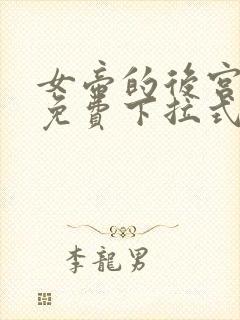 女帝的後宮
免費下拉式
李龍男